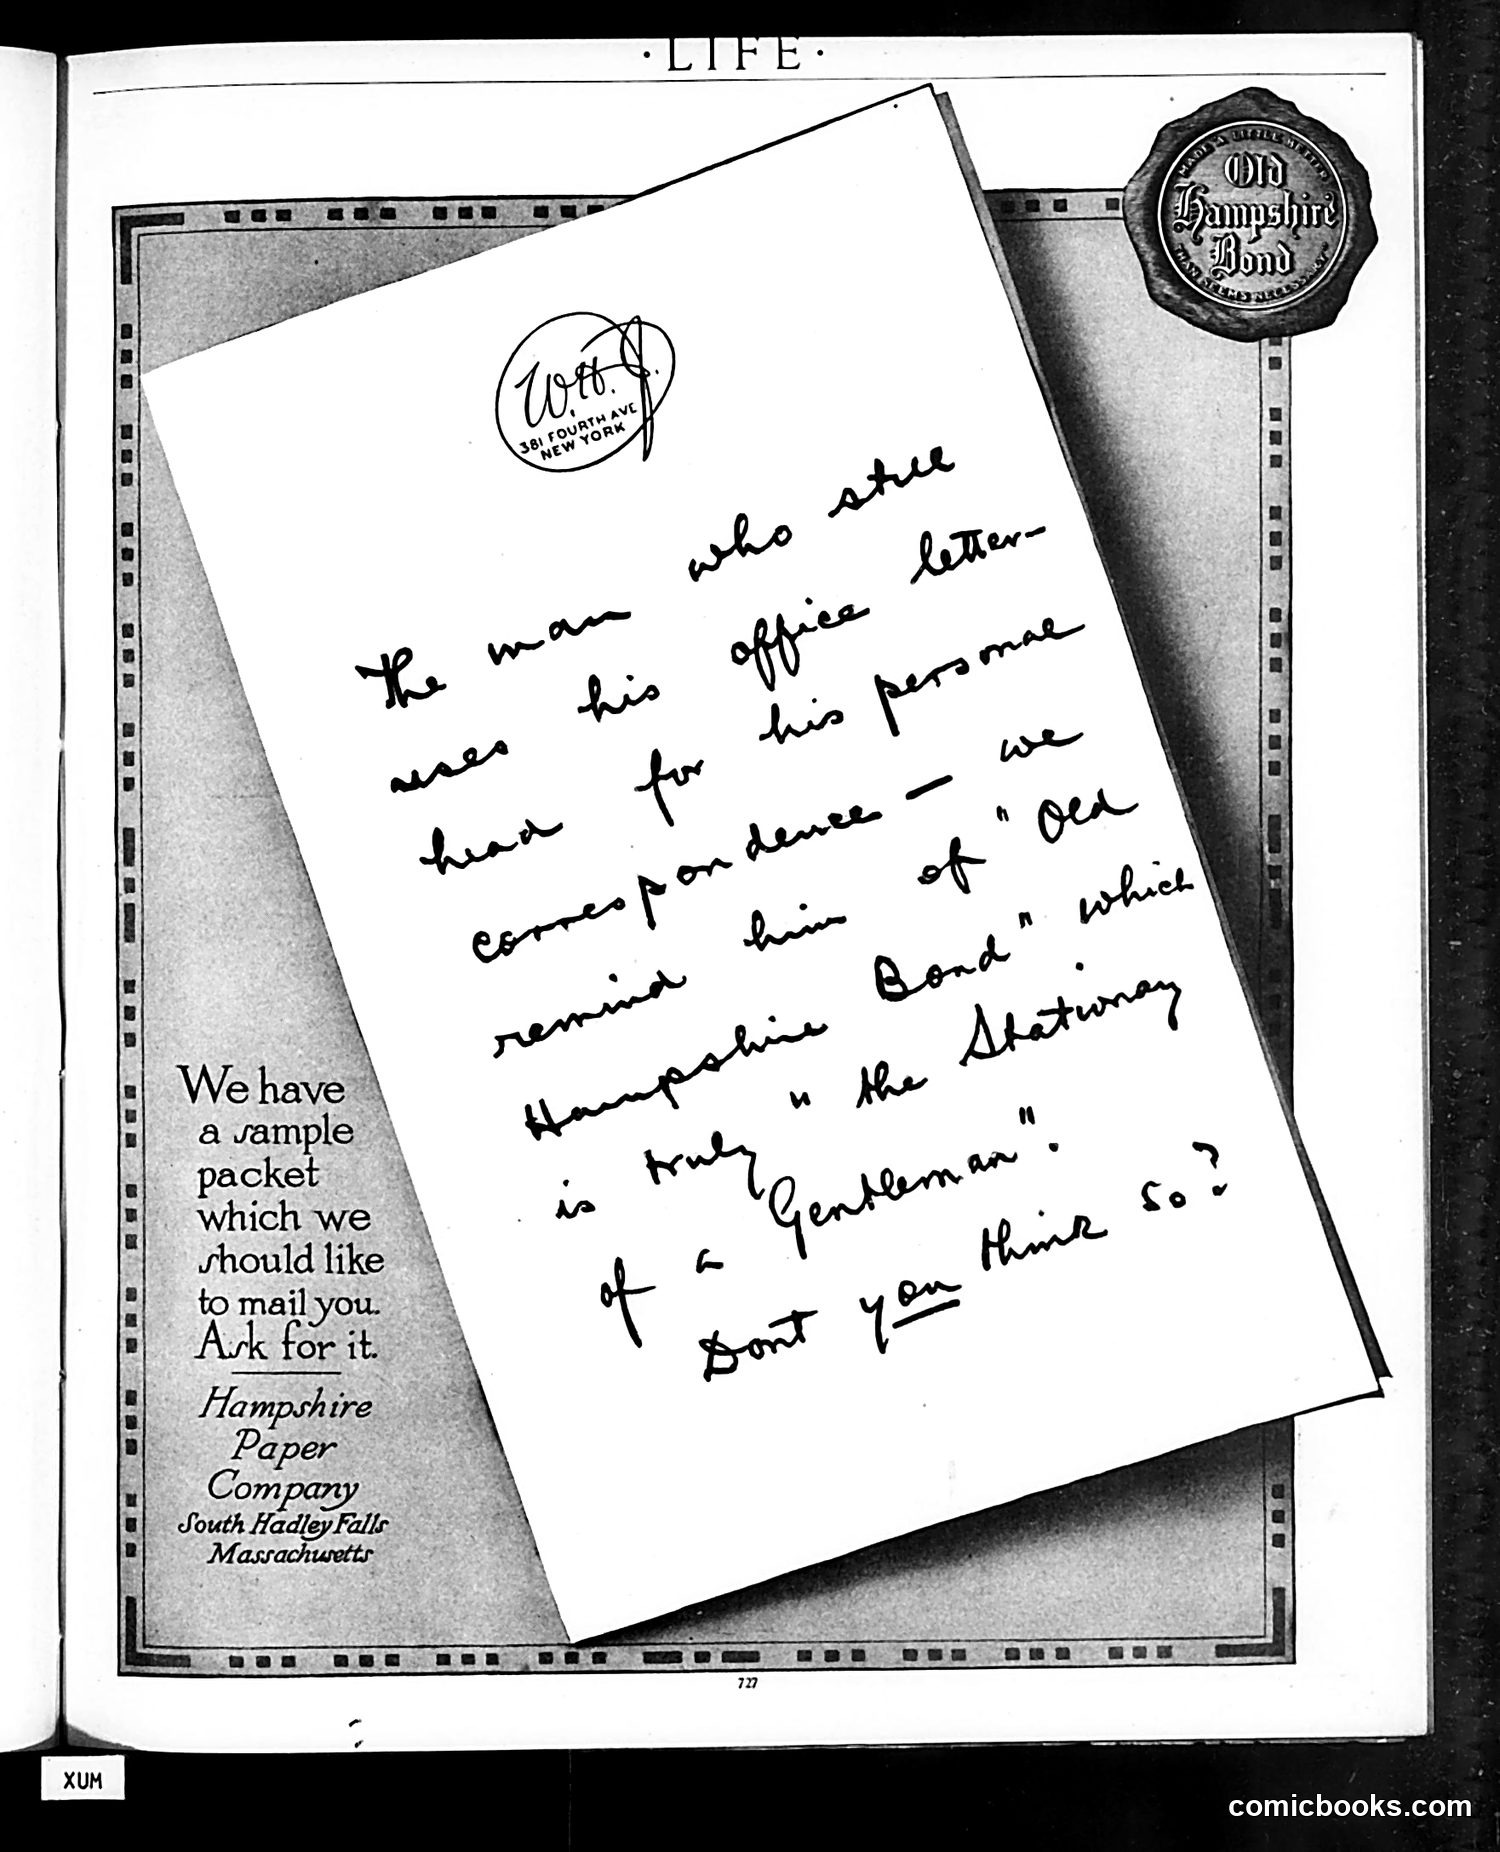 · LIFE ·
MADE A LITTLE BETTER
Old
Hampshire
Bond
THAN SEEMS NECESSARY
W.H.J.
381 FOURTH AVE
NEW YORK
The man who still
uses his office letter-
head for his personal
correspondence — we
remind him of "Old
Hampshire Bond" which
is truly "the Stationay
of a Gentleman".
Dont you think so?
We have
a sample
packet
which we
should like
to mail you.
Ask for it.
Hampshire
Paper
Company
South Hadley Falls
Massachusetts
727
XUM
comicbooks.com